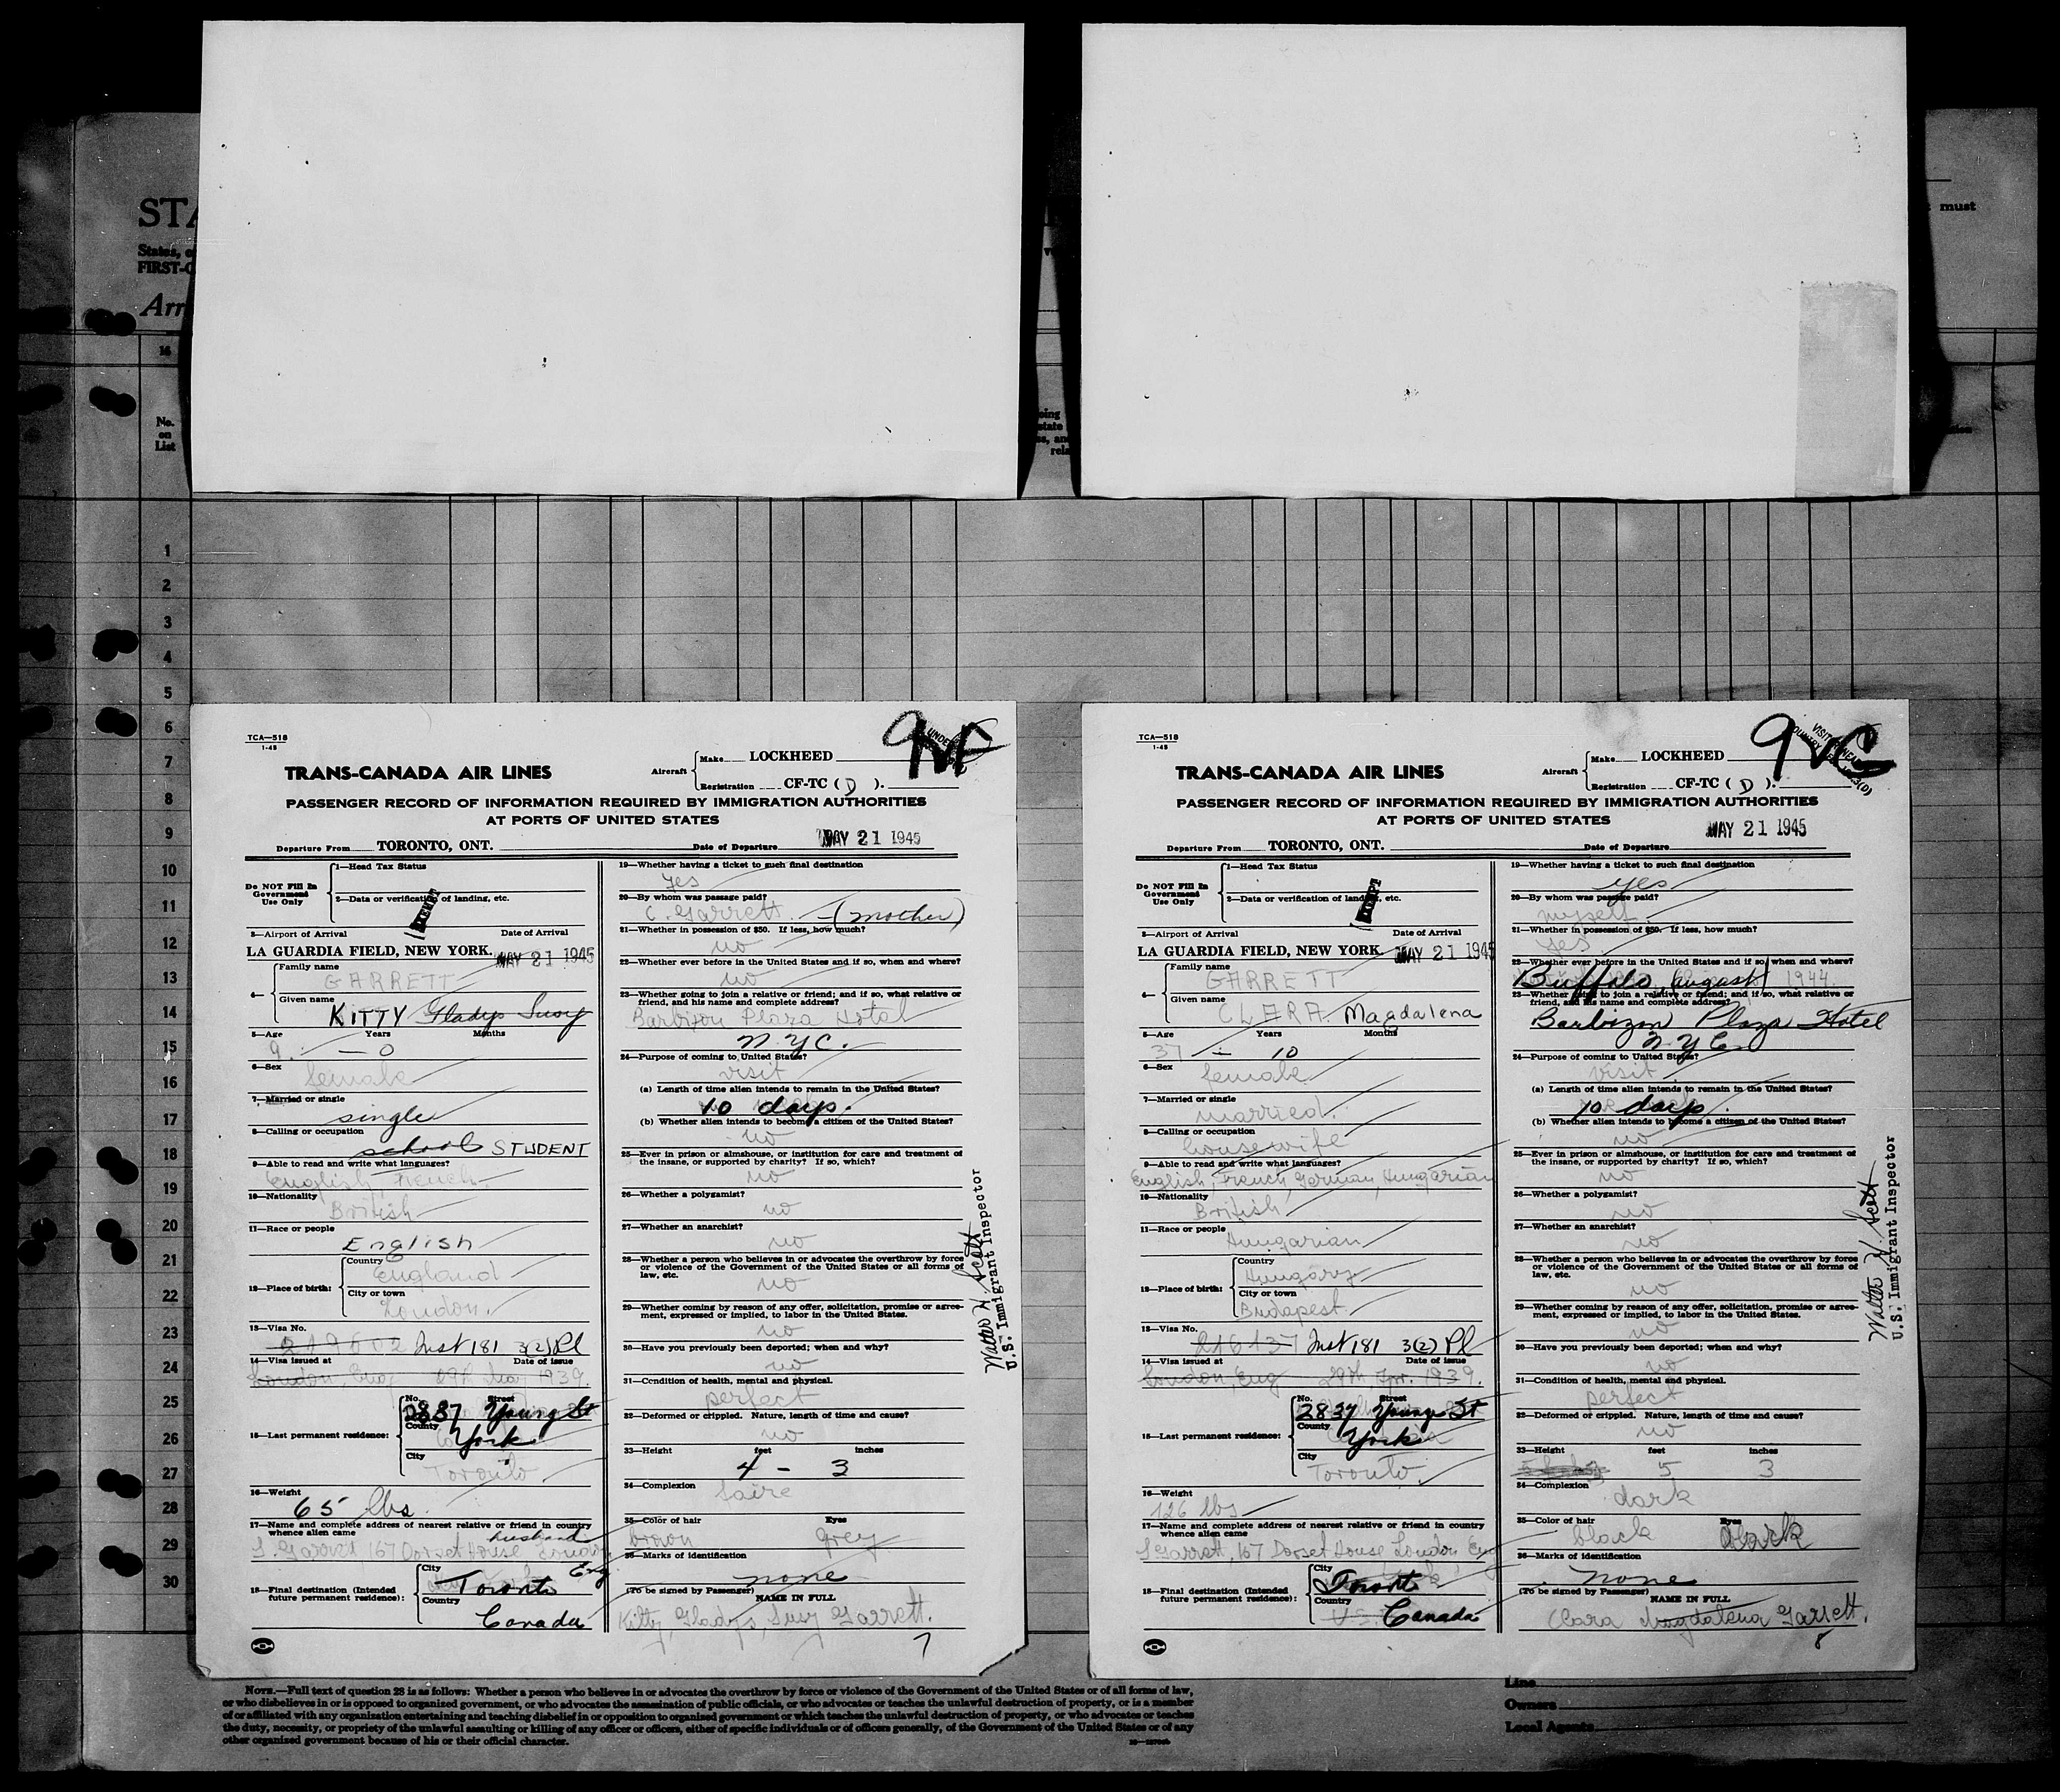 STA
States, o
FIRST-C
Arr
must
16
No.
on
List
1
2
3
4
5
6
7
8
9
10
11
12
13
14
15
16
17
18
19
20
21
22
23
24
25
26
27
28
29
30
TCA—518
1-45
TRANS-CANADA AIR LINES
Aircraft
Make LOCKHEED
Registration CF-TC ( D ).
PASSENGER RECORD OF INFORMATION REQUIRED BY IMMIGRATION AUTHORITIES
AT PORTS OF UNITED STATES
Departure From TORONTO, ONT. Date of Departure MAY 21 1945
Do NOT Fill In
Government
Use Only
1—Head Tax Status
2—Data or verification of landing, etc.
3—Airport of Arrival Date of Arrival
LA GUARDIA FIELD, NEW YORK. MAY 21 1945
4—
Family name
GARRETT
Given name
KITTY Gladys Susy
5—Age Years Months
9 — 0
6—Sex
female
7—Married or single
single
8—Calling or occupation
school STUDENT
9—Able to read and write what languages?
English, French
10—Nationality
British
11—Race or people
English
12—Place of birth:
Country
England
City or town
London.
13—Visa No.
219602 Inst 181 3(2) Pl
14—Visa issued at Date of issue
London, Eng 1939.
15—Last permanent residence:
No. Street
2837 Young St
County
York
City
Toronto
16—Weight
65 lbs.
17—Name and complete address of nearest relative or friend in country
whence alien came
husband
S. Garrett 167 Dorset House London
Eng
18—Final destination (Intended
future permanent residence):
City
Toronto
Country
Canada
19—Whether having a ticket to such final destination
yes
20—By whom was passage paid?
C. Garrett. — (mother)
21—Whether in possession of $50. If less, how much?
no
22—Whether ever before in the United States and if so, when and where?
no
23—Whether going to join a relative or friend; and if so, what relative or
friend, and his name and complete address?
Barbizon Plaza Hotel
N.Y.C.
24—Purpose of coming to United States?
visit
(a) Length of time alien intends to remain in the United States?
10 days.
(b) Whether alien intends to become a citizen of the United States?
no
25—Ever in prison or almshouse, or institution for care and treatment of
the insane, or supported by charity? If so, which?
no
26—Whether a polygamist?
no
27—Whether an anarchist?
no
28—Whether a person who believes in or advocates the overthrow by force
or violence of the Government of the United States or all forms of
law, etc.
no
29—Whether coming by reason of any offer, solicitation, promise or agree-
ment, expressed or implied, to labor in the United States.
no
30—Have you previously been deported; when and why?
no
31—Condition of health, mental and physical.
perfect
32—Deformed or crippled. Nature, length of time and cause?
no
33—Height feet inches
4 - 3
34—Complexion
faire
35—Color of hair Eyes
brown grey
36—Marks of identification
none
(To be signed by Passenger) NAME IN FULL
Kitty, Gladys, Susy Garrett.
7
Walter H. Scott
U.S. Immigrant Inspector
TCA—518
1-45
TRANS-CANADA AIR LINES
Aircraft
Make LOCKHEED
Registration CF-TC ( D ).
PASSENGER RECORD OF INFORMATION REQUIRED BY IMMIGRATION AUTHORITIES
AT PORTS OF UNITED STATES
Departure From TORONTO, ONT. Date of Departure MAY 21 1945
Do NOT Fill In
Government
Use Only
1—Head Tax Status
2—Data or verification of landing, etc.
3—Airport of Arrival Date of Arrival
LA GUARDIA FIELD, NEW YORK. MAY 21 1945
4—
Family name
GARRETT
Given name
CLARA Magdalena
5—Age Years Months
37 — 10
6—Sex
female
7—Married or single
married.
8—Calling or occupation
housewife
9—Able to read and write what languages?
English, French, German, Hungarian
10—Nationality
British
11—Race or people
Hungarian
12—Place of birth:
Country
Hungary
City or town
Budapest.
13—Visa No.
216137 Inst 181 3(2) Pl
14—Visa issued at Date of issue
London, Eng 29th Apr. 1939.
15—Last permanent residence:
No. Street
2837 Young St
County
York
City
Toronto.
16—Weight
126 lbs
17—Name and complete address of nearest relative or friend in country
whence alien came
S. Garrett, 167 Dorset House London Eng
18—Final destination (Intended
future permanent residence):
City
Toronto
Country
Canada
19—Whether having a ticket to such final destination
yes
20—By whom was passage paid?
myself
21—Whether in possession of $50. If less, how much?
yes
22—Whether ever before in the United States and if so, when and where?
Buffalo, August 1944
23—Whether going to join a relative or friend; and if so, what relative or
friend, and his name and complete address?
Barbizon Plaza Hotel
N.Y.C.
24—Purpose of coming to United States?
visit
(a) Length of time alien intends to remain in the United States?
10 days.
(b) Whether alien intends to become a citizen of the United States?
no
25—Ever in prison or almshouse, or institution for care and treatment of
the insane, or supported by charity? If so, which?
no
26—Whether a polygamist?
no
27—Whether an anarchist?
no
28—Whether a person who believes in or advocates the overthrow by force
or violence of the Government of the United States or all forms of
law, etc.
no
29—Whether coming by reason of any offer, solicitation, promise or agree-
ment, expressed or implied, to labor in the United States.
no
30—Have you previously been deported; when and why?
no
31—Condition of health, mental and physical.
perfect
32—Deformed or crippled. Nature, length of time and cause?
no
33—Height feet inches
5 3
34—Complexion
dark
35—Color of hair Eyes
black dark
36—Marks of identification
none
(To be signed by Passenger) NAME IN FULL
Clara Magdalena Garrett.
8
Walter H. Scott
U.S. Immigrant Inspector
NOTE.—Full text of question 28 is as follows: Whether a person who believes in or advocates the overthrow by force or violence of the Government of the United States or of all forms of law,
or who disbelieves in or is opposed to organized government, or who advocates the assassination of public officials, or who advocates or teaches the unlawful destruction of property, or is a member
of or affiliated with any organization entertaining and teaching disbelief in or opposition to organized government or which teaches the unlawful destruction of property, or who advocates or teaches
the duty, necessity, or propriety of the unlawful assaulting or killing of any officer or officers, either of specific individuals or of officers generally, of the Government of the United States or of any
other organized government because of his or their official character.
Line
Owners
Local Agents